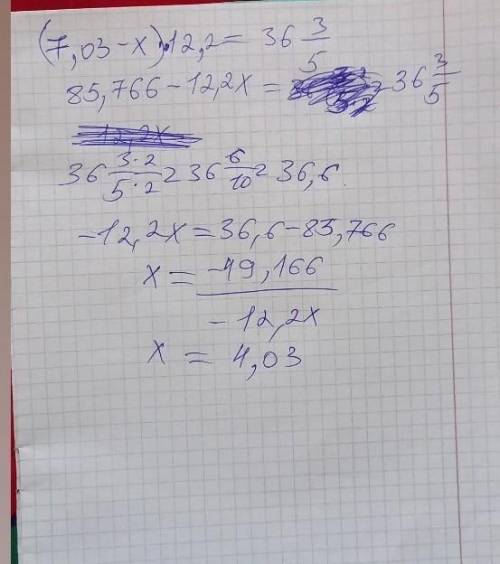 (7,03-x)·12,2= 36 3/5
85,766-12,2x= 36 3/5
36 3·2/5·2 = 36 6/10 = 36,6.
-12,2x=36,6-85,766
x= -49,166/-12,2x
x = 4,03